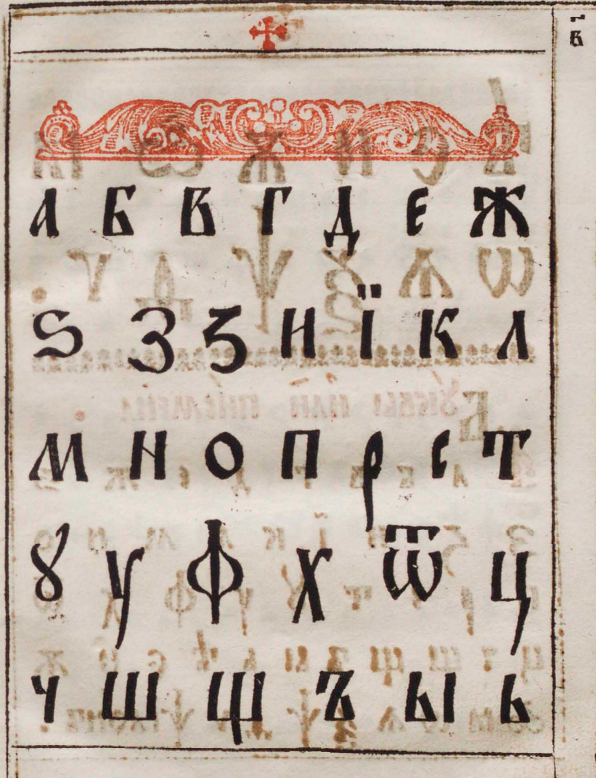 в҃
А Б В Г Д Е Ж
Ѕ З Ꙁ И Ї К Л
М Н О П Р С Т
Ꙋ У Ф Х Ѿ Ц
Ч Ш Щ Ъ Ы Ь